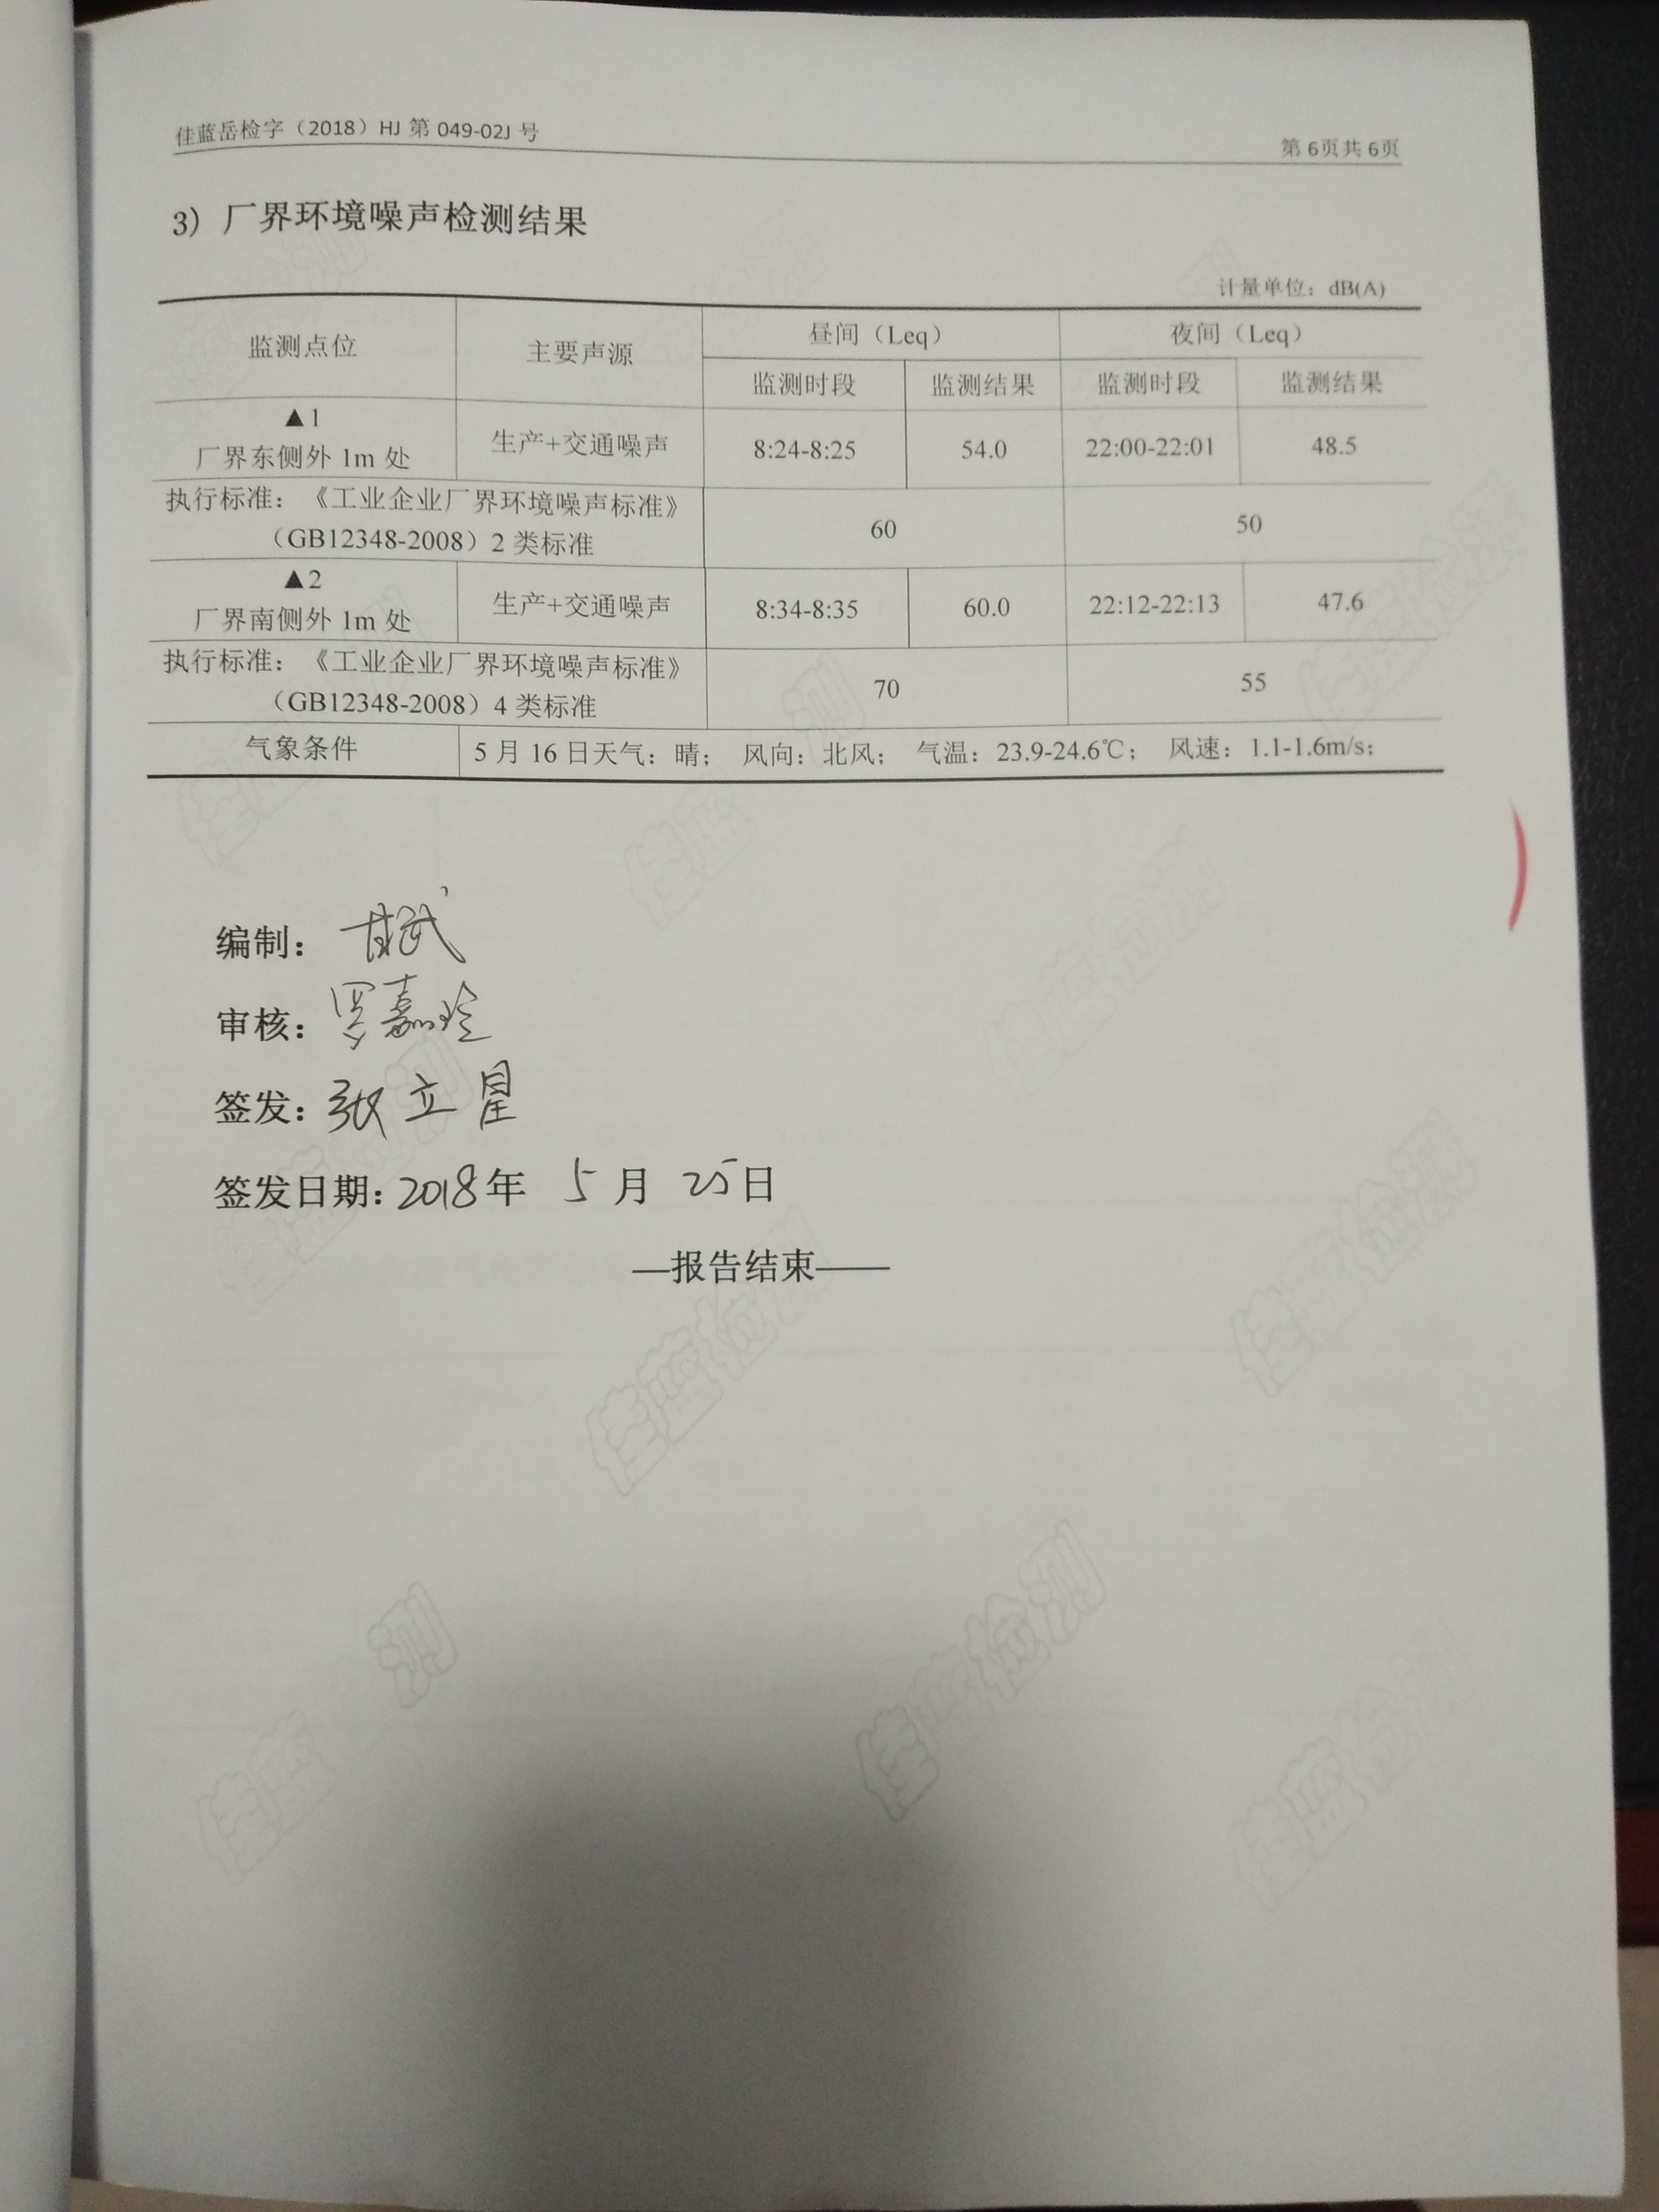 佳蓝岳检字（2018）HJ 第 049-02J 号
第 6页共 6页
3）厂界环境噪声检测结果
计量单位：dB(A)
监测点位 主要声源 昼间（Leq） 夜间（Leq）
监测时段 监测结果 监测时段 监测结果
▲1
厂界东侧外 1m 处 生产+交通噪声 8:24-8:25 54.0 22:00-22:01 48.5
执行标准：《工业企业厂界环境噪声标准》
（GB12348-2008）2 类标准 60 50
▲2
厂界南侧外 1m 处 生产+交通噪声 8:34-8:35 60.0 22:12-22:13 47.6
执行标准：《工业企业厂界环境噪声标准》
（GB12348-2008）4 类标准 70 55
气象条件 5 月 16 日天气：晴； 风向：北风； 气温：23.9-24.6℃； 风速：1.1-1.6m/s；
编制：
审核：罗嘉玲
签发：张立星
签发日期：2018年 5 月 25日
—报告结束——
佳蓝检测